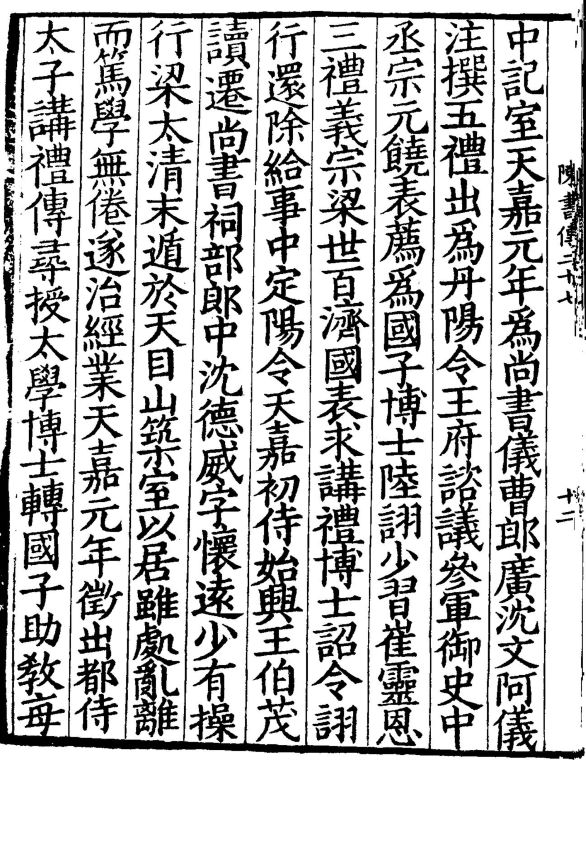 陳書傳二十七
十二
中記室天嘉元年爲尚書儀曹郎廣沈文阿儀
注撰五禮出爲丹陽令王府諮議參軍御史中
丞宗元饒表薦爲國子博士陸詡少習崔靈恩
三禮義宗梁世百濟國表求講禮博士詔令詡
行還除給事中定陽令天嘉初侍始興王伯茂
讀遷尚書祠部郎中沈德威字懷遠少有操
行梁太清末遁於天目山築室以居雖處亂離
而篤學無倦遂治經業天嘉元年徵出都侍
太子講禮傳尋授太學博士轉國子助教每